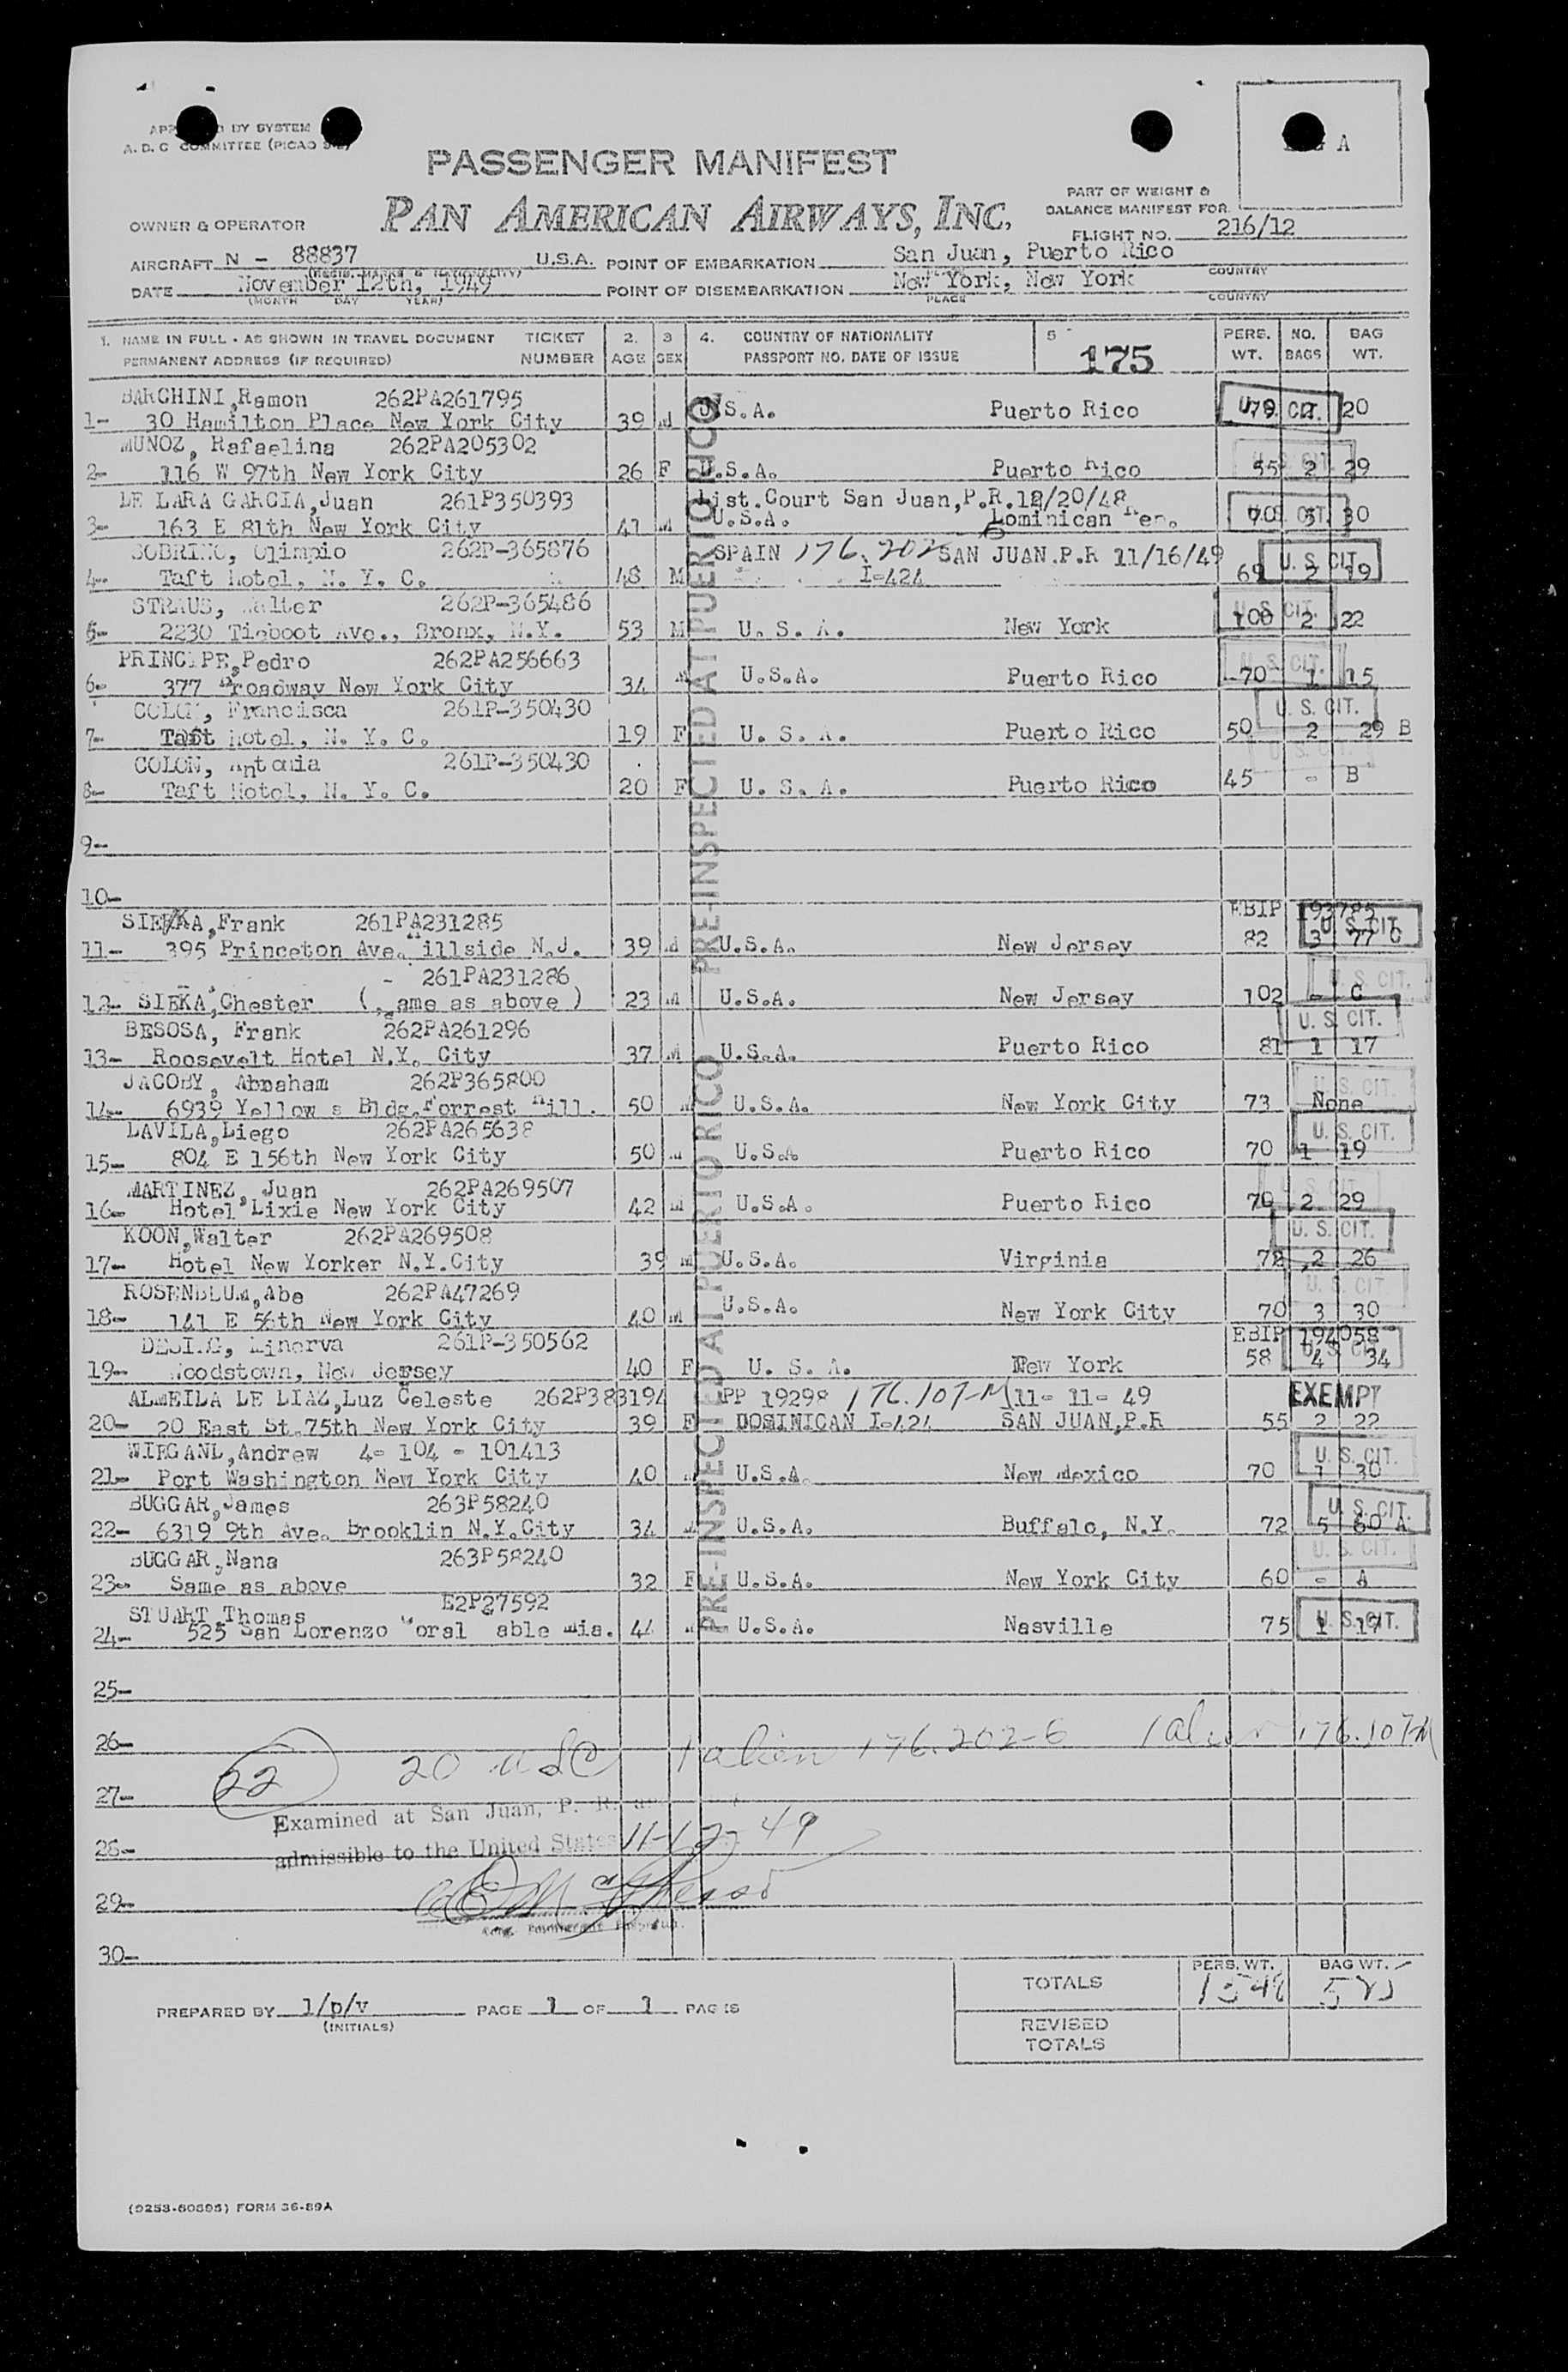 BY SYSTEM
A. D. C COMMITTEE (PICAO
A
PASSENGER MANIFEST
PART OF WEIGHT &
BALANCE MANIFEST FOR
OWNER & OPERATOR
PAN AMERICAN AIRWAYS, INC.
FLIGHT NO. 216/12
AIRCRAFT N - 88837 U.S.A. POINT OF EMBARKATION San Juan, Puerto Rico
(REGIS. MARKS & NATIONALITY) COUNTRY
DATE November 12th, 1949 POINT OF DISEMBARKATION New York, New York
(MONTH DAY YEAR) PLACE COUNTRY
1. NAME IN FULL - AS SHOWN IN TRAVEL DOCUMENT TICKET 2. 3 4. COUNTRY OF NATIONALITY 5 PERS. NO. BAG
PERMANENT ADDRESS (IF REQUIRED) NUMBER AGE SEX PASSPORT NO. DATE OF ISSUE 175 WT. BAGS WT.
BARCHINI, Ramon 262PA261795
1- 30 Hamilton Place New York City 39 M U.S.A. Puerto Rico U.S. CIT. 20
MUNOZ, Rafaelina 262PA205302
2- 116 W 97th New York City 26 F U.S.A. Puerto Rico 55 2 29
U.S. CIT.
DE LARA GARCIA, Juan 261P350393 Dist. Court San Juan, P.R. 12/20/48
3- 163 E 81th New York City 41 M U.S.A. Dominican 70 30
U.S. CIT.
SOBRINO, Olimpio 262P-365876 SPAIN 176.202 SAN JUAN.P.R 11/16/49
4- Taft Hotel, N. Y. C. 48 M I-424 69 2 19
U. S. CIT.
STRAUS, Walter 262P-365486
5- 2230 Tieboot Ave., Bronx, N.Y. 53 M U. S. A. New York 100 2 22
U. S. CIT.
PRINCIPE, Pedro 262PA256663
6- 377 Broadway New York City 34 M U.S.A. Puerto Rico 70 1 15
U. S. CIT.
COLON, Francisca 261P-350430
7- Taft Hotel, N. Y. C. 19 F U. S. A. Puerto Rico 50 2 29 B
U. S. CIT.
COLON, Antonia 261P-350430
8- Taft Hotel, N. Y. C. 20 F U. S. A. Puerto Rico 45 - B
9-
10-
PRE-INSPECTED AT PUERTO RICO
SIEKA, Frank 261PA231285 EBIP 193785
11- 395 Princeton Ave. Hillside N.J. 39 M U.S.A. New Jersey 82 3 77 C
U. S. CIT.
261PA231286
12- SIEKA, Chester (Same as above) 23 M U.S.A. New Jersey 102 - C
U. S. CIT.
BESOSA, Frank 262PA261296
13- Roosevelt Hotel N.Y. City 37 M U.S.A. Puerto Rico 81 1 17
U. S. CIT.
JACOBY, Abraham 262P365800
14- 6939 Yellow s Bldg. Forrest Hill. 50 M U.S.A. New York City 73 None
U. S. CIT.
DAVILA, Diego 262PA265638
15- 804 E 156th New York City 50 M U.S.A Puerto Rico 70 1 19
U. S. CIT.
MARTINEZ, Juan 262PA269507
16- Hotel Dixie New York City 42 M U.S.A. Puerto Rico 70 2 29
U. S. CIT.
KOON, Walter 262PA269508
17- Hotel New Yorker N.Y.City 39 M U.S.A. Virginia 78 2 26
U. S. CIT.
ROSENBLUM, Abe 262PA47269
18- 141 E 56th New York City 40 M U.S.A. New York City 70 3 30
U. S. CIT.
Minerva 261P-350562 EBIP 194058
19- Woodstown, New Jersey 40 F U. S. A. New York 58 4 34
U. S. CIT.
ALMEIDA DE DIAZ, Luz Celeste 262P383194 PP 19298 176.107-M 11- 11- 49 EXEMPT
20- 20 East St. 75th New York City 39 F DOMINICAN I-424 SAN JUAN, P.R 55 2 22
WIEGAND, Andrew 4- 104 - 101413
21- Port Washington New York City 40 M U.S.A. New Mexico 70 1 30
U. S. CIT.
BUGGAR, James 263P58240
22- 6319 9th Ave. Brooklin N.Y.City 34 M U.S.A. Buffalo, N.Y. 72 5 60 A
U. S. CIT.
BUGGAR, Nana 263P58240
23- Same as above 32 F U.S.A. New York City 60 - A
U. S. CIT.
STUART, Thomas E2P27592
24- 525 San Lorenzo Coral Gable Mia. 44 M U.S.A. Nasville 75 1 17
U. S. CIT.
PRE-INSPECTED AT PUERTO RICO
25-
26-
22 20 USC 1 alien 176.202-6 1 alien 176.107-M
27-
Examined at San Juan, P. R.
28- admissible to the United States 11-12-49
29-
30-
TOTALS PERS. WT. BAG WT.
PREPARED BY 1/p/v PAGE 1 OF 1 PAGES
(INITIALS)
REVISED
TOTALS
(9253-60695) FORM 36-89A